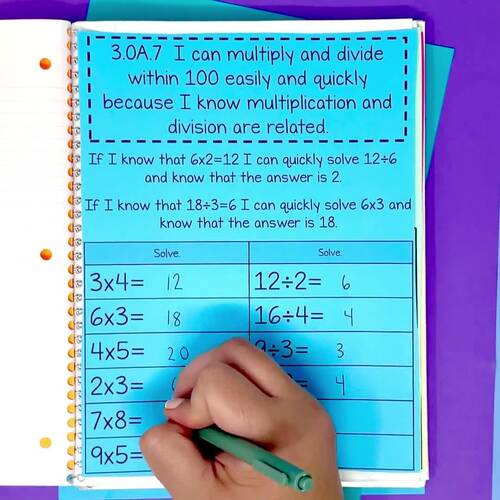 3.OA.7 I can multiply and divide
within 100 easily and quickly
because I know multiplication and
division are related.
If I know that 6x2=12 I can quickly solve 12÷6
and know that the answer is 2.
If I know that 18÷3=6 I can quickly solve 6x3 and
know that the answer is 18.
Solve. Solve.
3x4= 12 12÷2= 6
6x3= 18 16÷4= 4
4x5= 20 ÷3= 3
2x3= = 4
7x8=
9x5=